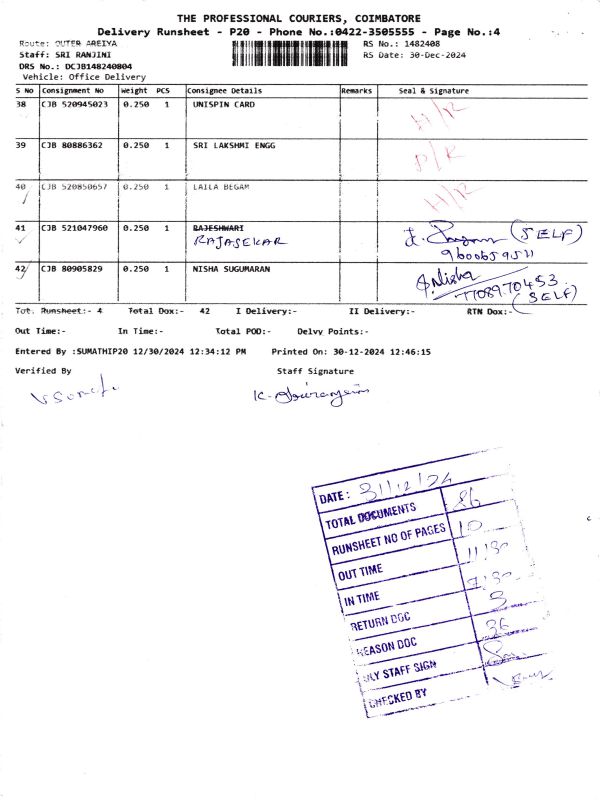 THE PROFESSIONAL COURIERS, COIMBATORE
Delivery Runsheet - P20 - Phone No.:0422-3505555 - Page No.:4
Route: OUTER AREIYA RS No.: 1482408
Staff: SRI RANJINI RS Date: 30-Dec-2024
DRS No.: DCJB148240804
Vehicle: Office Delivery
S No Consignment No Weight PCS Consignee Details Remarks Seal & Signature
38 CJB 520945023 0.250 1 UNISPIN CARD H/R
39 CJB 80886362 0.250 1 SRI LAKSHMI ENGG P/R
40 CJB 520850657 0.250 1 LAILA BEGAM H/R
41 CJB 521047960 0.250 1 RAJESHWARI (SELF)
RAJASEKAR 9600659511
42 CJB 80905829 0.250 1 NISHA SUGUMARAN Nisha
7708970453
(SELF)
Tot. Runsheet:- 4 Total Dox:- 42 I Delivery:- II Delivery:- RTN Dox:-
Out Time:- In Time:- Total POD:- Delvy Points:-
Entered By :SUMATHIP20 12/30/2024 12:34:12 PM Printed On: 30-12-2024 12:46:15
Verified By Staff Signature
DATE: 31/12/24
TOTAL DOCUMENTS 86
RUNSHEET NO OF PAGES 10
OUT TIME 11:30
IN TIME 7:30
RETURN DOC 3
REASON DOC 36
DLY STAFF SIGN
CHECKED BY